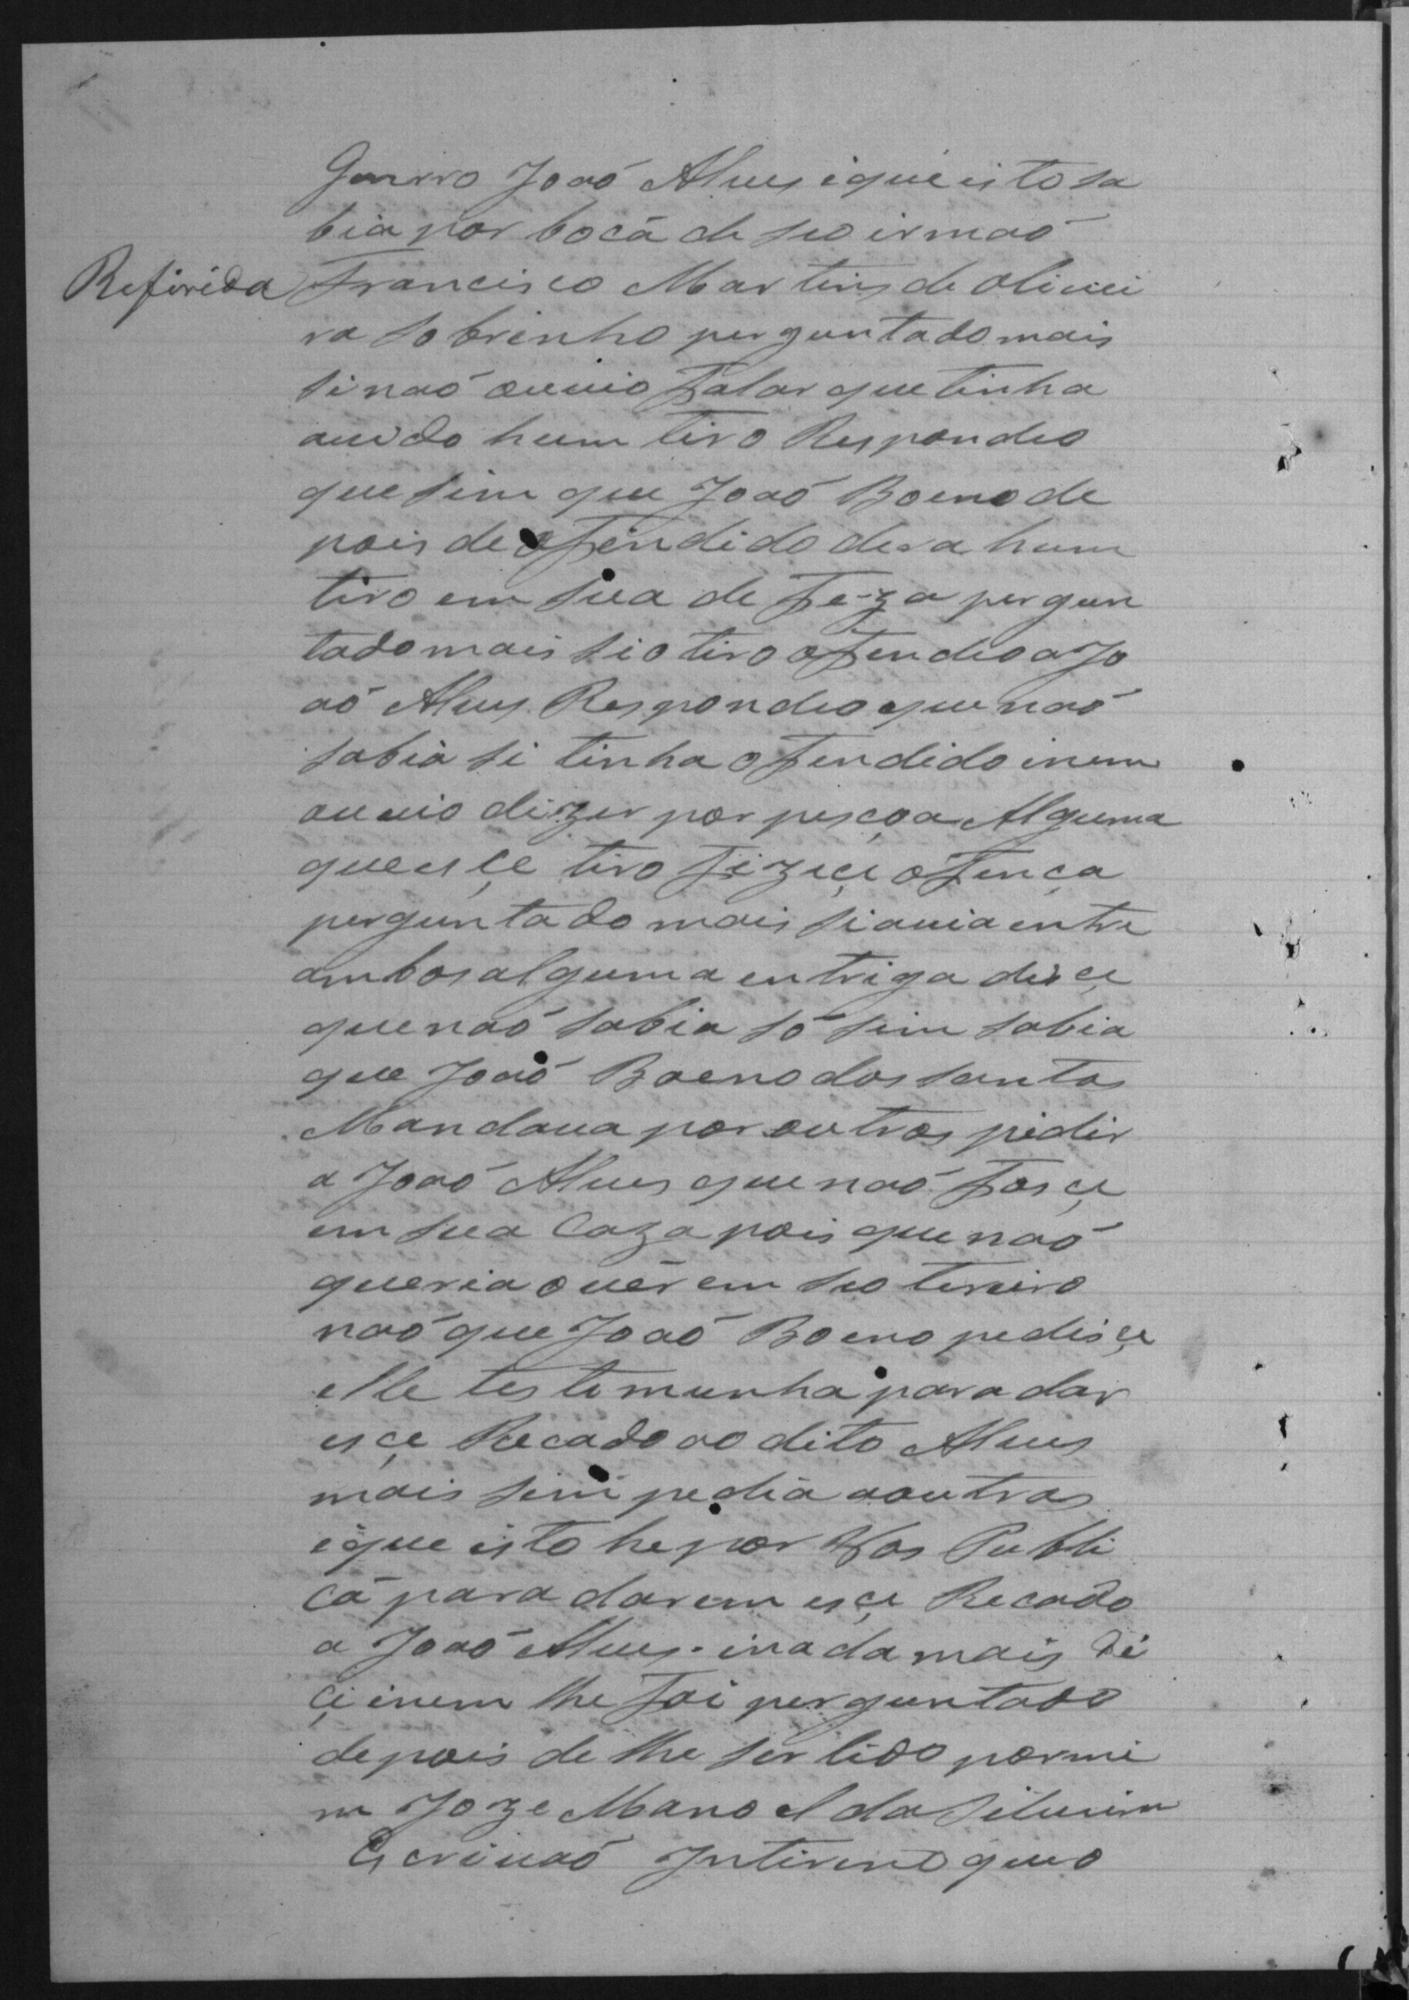 Genrro Joaõ Alves eque isto sa
bia por bocã de seo irmaõ
Refirida
Francisco Martins de olivei
ra sobrinho perguntado mais
si naõ ouvio falar que tinha
avido hum tiro Respondeo
que sim que Joaõ Boeno de
pois de ofendido dera hum
tiro em sua defeza pergun
tado mais si o tiro ofendeo a Jo
aõ Alves. Respondeo que naõ
sabia si tinha ofendido inem
ouvio dizer por pesçoa Alguma
que esçe tiro fizeçe ofença
perguntado mais si avia entre
ambos alguma entriga disçe
que naõ sabia só sim sabia
que Joaõ Boeno dos santos
Mandava por outros pidir
a Joaõ Alves que naõ fosçe
em sua Caza pois que naõ
queria o ver em seo terreiro
naõ que Joaõ Boeno pedisçe
elle testimunha para dar
esçe Recado ao dito Alves
mais sim pedia aoutros
eque isto he por Vos Publi
ca para darem esçe Recado
a Joaõ Alves. inada mais di
çi inem lhe foi perguntado
depois de lhe ser lido por mi
m Joze Manoel da Silveira
Escrivaõ Interino que o